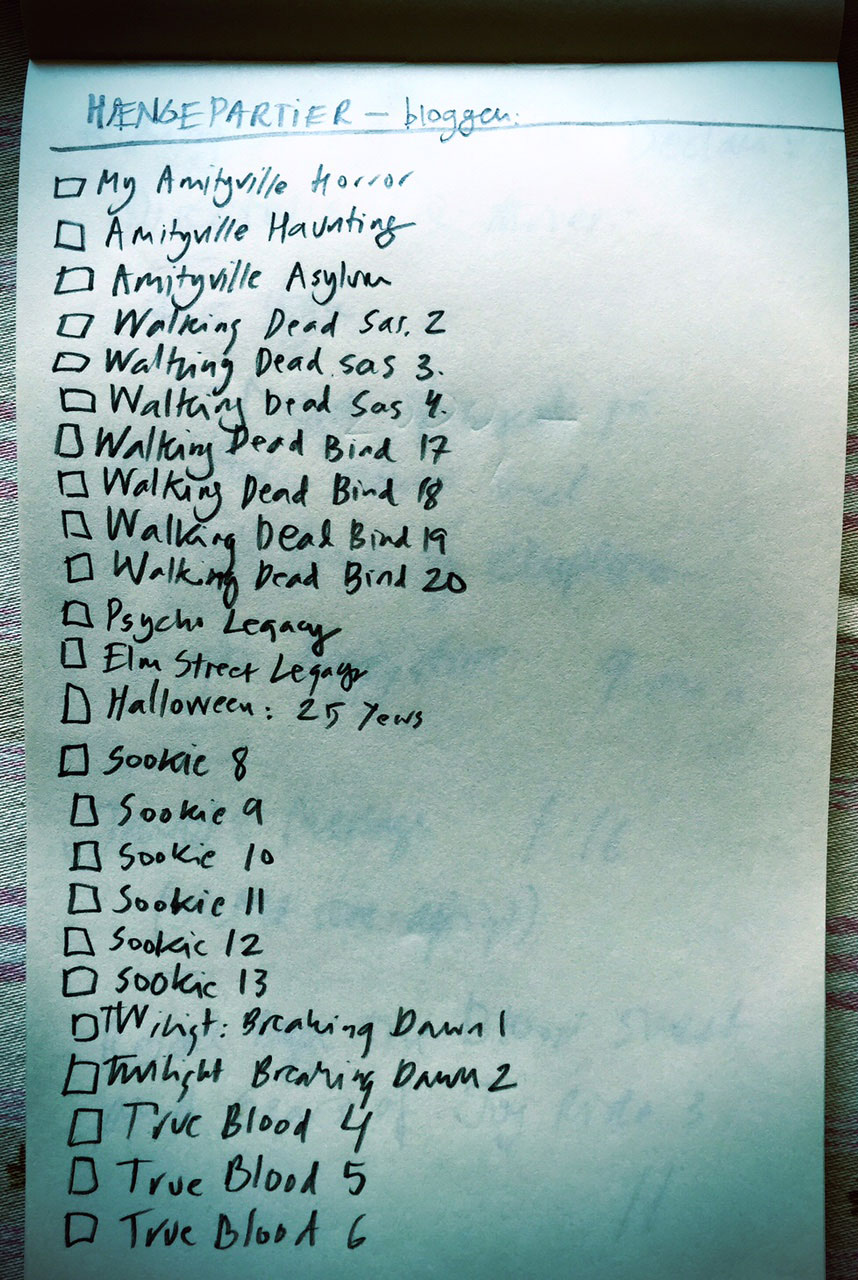 HÆNGEPARTIER - bloggen:
My Amityville Horror
Amityville Haunting
Amityville Asylum
Walking Dead Sæs. 2
Walking Dead sæs 3.
Walking Dead Sæs 4.
Walking Dead Bind 17
Walking Dead Bind 18
Walking Dead Bind 19
Walking Dead Bind 20
Psycho Legacy
Elm Street Legacy
Halloween: 25 Years
Sookie 8
Sookie 9
Sookie 10
Sookie 11
Sookie 12
Sookie 13
TWiligt: Breaking Dawn 1
Twilight Breaking Dawn 2
True Blood 4
True Blood 5
True Blood 6